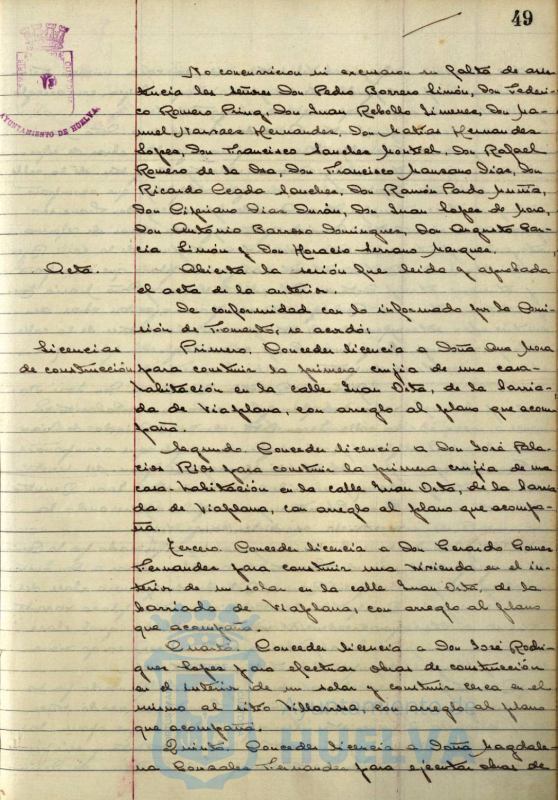 49
AYUNTAMIENTO DE HUELVA
No concurrieron ni excusaron su falta de asis-
tencia los señores Don Pedro Borrero Limón, Don Federi-
co Romero Prinz, Don Juan Rebollo Jimenez, Don Ma-
nuel Narvaez Hernandez, Don Matias Hernandez
Lopez, Don Francisco Sanchez Montiel, Don Rafael
Romero de la Osa, Don Francisco Manzano Diaz, Don
Ricardo Ceada Sanchez, Don Ramón Pardo Muñiz,
Don Cipriano Diaz Durán, Don Juan Lopez de Mora,
Don Antonio Barroso Dominguez, Don Augusto Gar-
cia Limón y Don Horacio Serrano Marquez.
Acta.
Abierta la sesión fue leida y aprobada
el acta de la anterior.
De conformidad con lo informado por la Comi-
sión de Fomento, se acordó:
Licencias
de construcción
Primero. Conceder licencia a Doña Ana Mora
para construir la primera crujia de una casa-
habitación en la calle Juan Orta, de la barria-
da de Viaplana, con arreglo al plano que acom-
paña.
Segundo. Conceder licencia a Don José Pala-
cios Rios para construir la primera crujia de una
casa-habitación en la calle Juan Orta, de la barria-
da de Viaplana, con arreglo al plano que acompa-
ña.
Tercero. Conceder licencia a Don Gerardo Gomez
Fernandez para construir una vivienda en el in-
terior de un solar en la calle Juan Orta, de la
barriada de Viaplana, con arreglo al plano
que acompaña.
Cuarto. Conceder licencia a Don José Rodri-
guez Lopez para efectuar obras de construcción
en el interior de un solar y construir cerca en el
mismo al sitio Villarosa, con arreglo al plano
que acompaña.
Quinto. Conceder licencia a Doña Magdale-
na Gonzalez Fernandez para ejecutar obras de
HUELVA